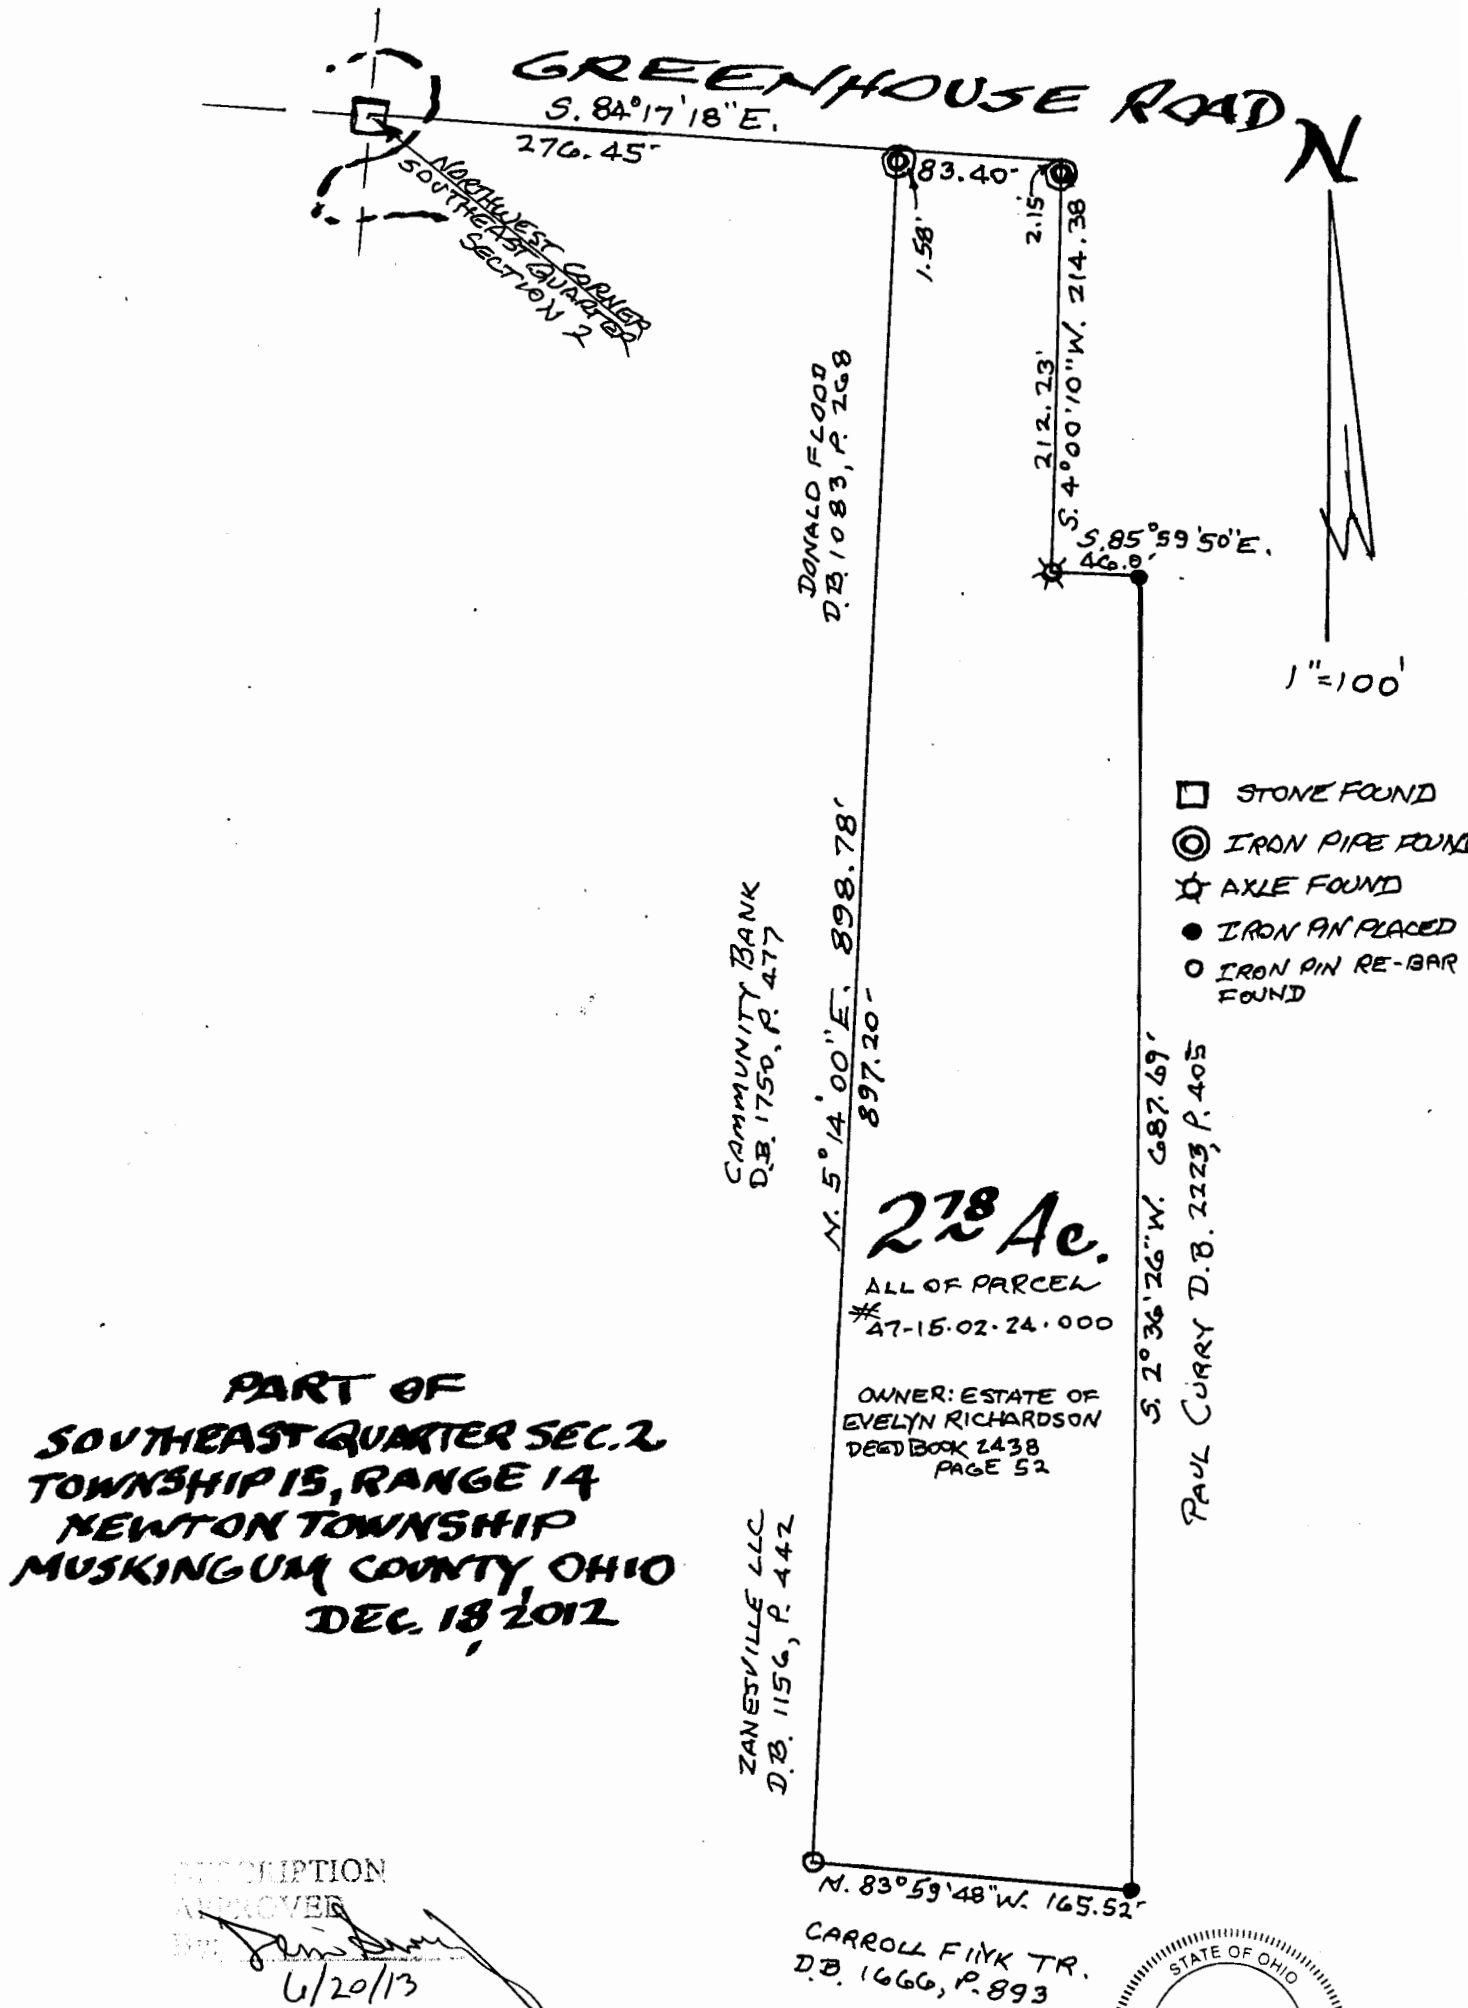 GREENHOUSE ROAD
S. 84°17'18"E.
276.45'
83.40'
N
NORTHWEST CORNER
SOUTHEAST QUARTER
SECTION 2
1.58'
2.15'
212.23'
S. 4°00'10"W. 214.38
S. 85°59'50"E.
46.0'
1"=100'
DONALD FLOOD
D.B. 1083, P. 268
□ STONE FOUND
IRON PIPE FOUND
AXLE FOUND
● IRON PIN PLACED
○ IRON PIN RE-BAR
FOUND
CAMMUNITY BANK
D.B. 1750, P. 477
N. 5°14'00"E. 898.78'
897.20'
S. 2°36'26"W. 687.69'
PAUL CURRY D.B. 2223, P. 405
2 78 Ac.
ALL OF PARCEL
# 47-15-02-24-000
OWNER: ESTATE OF
EVELYN RICHARDSON
DEED BOOK 2438
PAGE 52
PART OF
SOUTHEAST QUARTER SEC. 2
TOWNSHIP 15, RANGE 14
NEWTON TOWNSHIP
MUSKINGUM COUNTY, OHIO
DEC. 18, 2012
ZANESVILLE LLC
D.B. 1156, P. 442
N. 83°59'48"W. 165.52'
CARROLL FINK TR.
D.B. 1666, P. 893
DESCRIPTION
APPROVED
By:
6/20/13
STATE OF OHIO